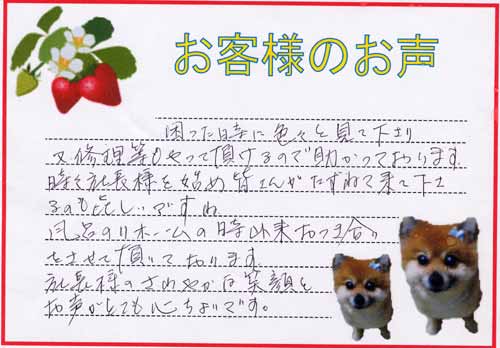 お客様のお声
困った時に色々と見て下さり
又修理等もやって頂けるので助かっております
時々社長様を始め皆さんがたずねて来て下さ
るのも嬉しいですね
風呂のリホームの時以来おつき合い
をさせて頂いております
社長様のさわやかな笑顔と
お声がとても心ちよいです。